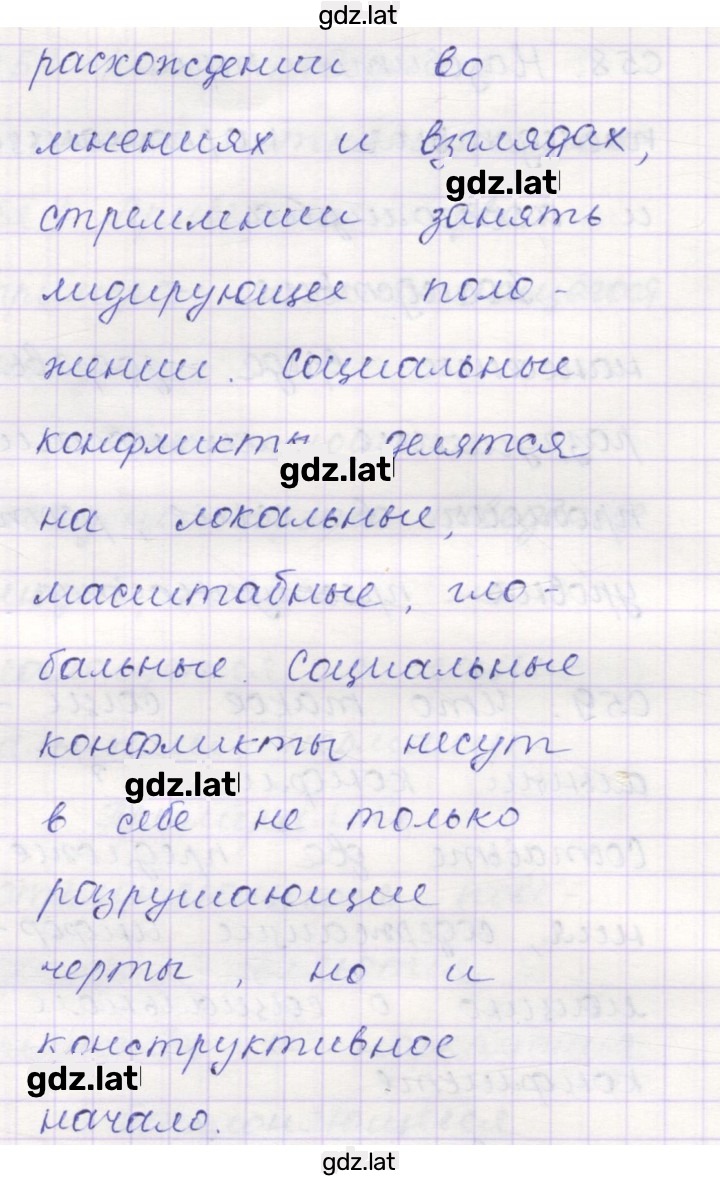 gdz.lat
расхождении во
мнениях и взглядах,
gdz.lat
стремлении занять
лидирующее поло-
жении. Социальные
конфликты делятся
gdz.lat
на локальные,
масштабные, гло-
бальные. Социальные
конфликты несут
gdz.lat
в себе не только
разрушающие
черты, но и
конструктивное
gdz.lat
начало.
gdz.lat